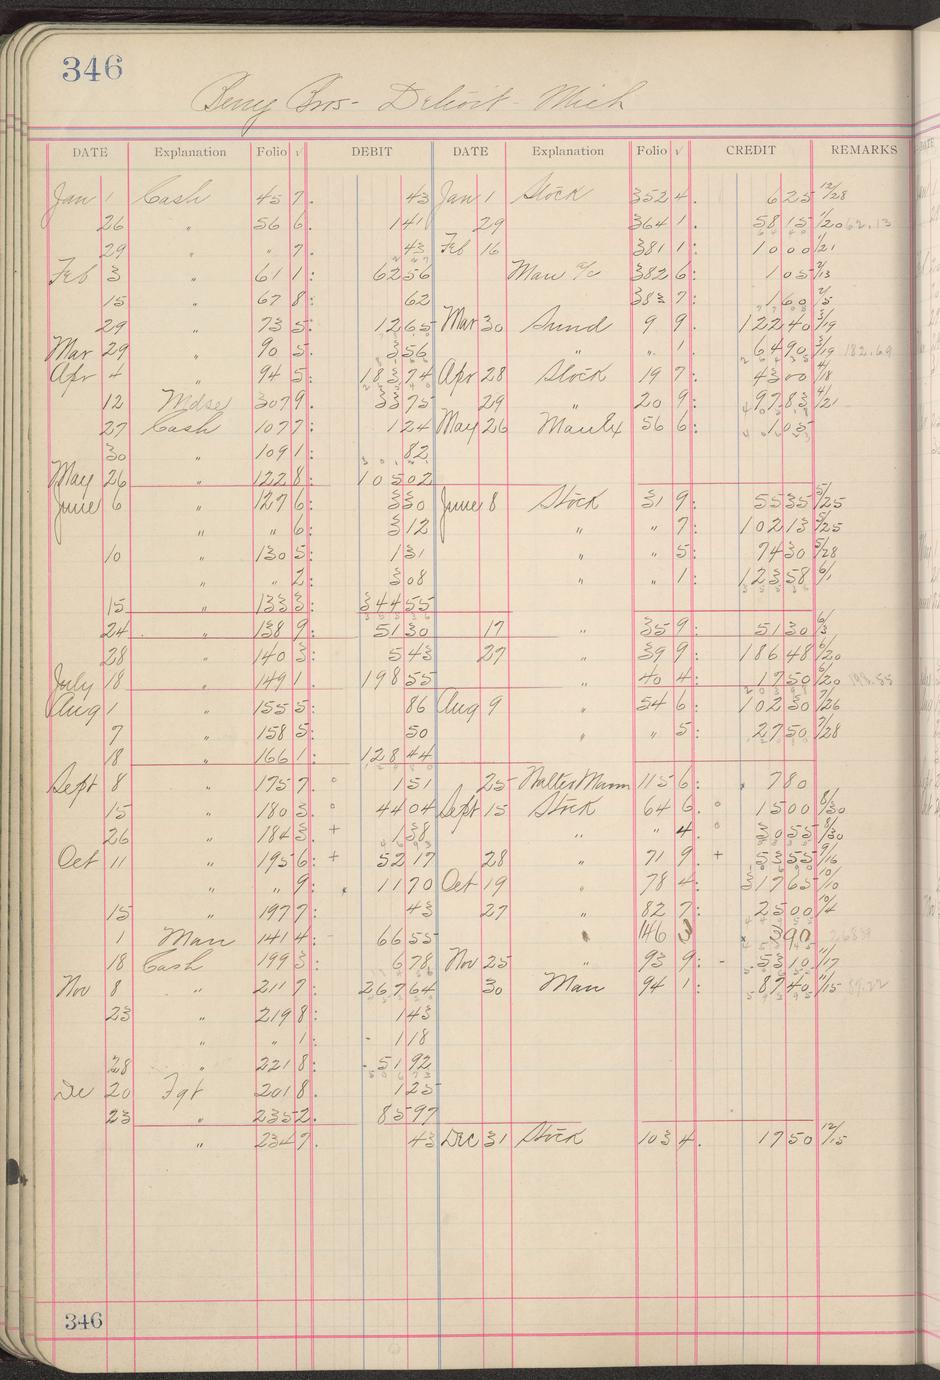 346
Berry Bros- Detroit- Mich
DATE Explanation Folio √ DEBIT DATE Explanation Folio √ CREDIT REMARKS
Jan 1 Cash 45 7. 43 Jan 1 Stock 352 4. 6 25 12/28
26 " 56 6. 1 41 29 364 1. 58 15 1/20 62.13
29 " " 7. 43 Feb 16 381 1: 10 00 1/21
Feb 3 " 61 1: 62 56 Man a/c 382 6: 1 05 2/13
15 " 67 8: 62 383 7: 1 60 2/5
29 " 73 5: 12 65 Mar 30 Sund 9 9. 122 40 3/19
Mar 29 " 90 5. 3 56 " " 1. 64 90 3/19 182.69
Apr 4 " 94 5: 183 74 Apr 28 Stock 19 7: 43 00 4/18
12 Mdse 307 9. 33 75 29 " 20 9: 97 83 4/21
27 Cash 107 7: 1 24 May 26 ManEx 56 6: 1 05
30 " 109 1. 82
May 26 " 122 8: 105 02
June 6 " 127 6: 3 30 June 8 Stock 31 9: 55 35 5/25
" " 6: 3 12 " " 7: 102 13 5/25
10 " 130 5: 1 31 " " 5: 74 30 5/28
" " 2: 3 08 " " 1: 123 58 6/1
15 " 133 3: 344 55
24 " 138 9: 51 30 17 " 35 9: 51 30 6/3
28 " 140 3: 5 43 27 " 39 9: 186 48 6/20
July 18 " 149 1. 198 55 " 40 4: 17 50 6/20
Aug 1 " 155 5: 86 Aug 9 54 6: 102 30 7/26
7 " 158 5: 50 " " 5: 27 50 7/28
18 " 166 1: 128 44
Sept 8 " 175 7. 1 51 25 Walter Mann 115 6: 7 80
15 " 180 3. 44 04 Sept 15 Stock 64 6. 15 00 8/30
26 " 184 3: + 1 38 " " 4. 30 55 8/30
Oct 11 " 195 6: + 52 17 28 " 71 9. + 53 55 9/16
" " 9: 11 70 Oct 19 " 78 4: 317 65 10/10
15 " 197 7: 43 27 " 82 7: 25 00 10/4
1 Man 141 4: 66 55 146 3 3 90
18 Cash 199 3: 6 78 Nov 25 " 93 9: - 53 10 11/17
Nov 8 " 211 7: 267 64 30 Man 94 1: 87 40 11/15 89.22
23 " 219 8: 1 43
" " 1: - 1 18
28 " 221 8: - 51 92
De 20 Fgt 201 8. 1 25
23 " 235 2. 85 97
" 234 7. 43 Dec 31 Stock 103 4. 17 50 12/15
346